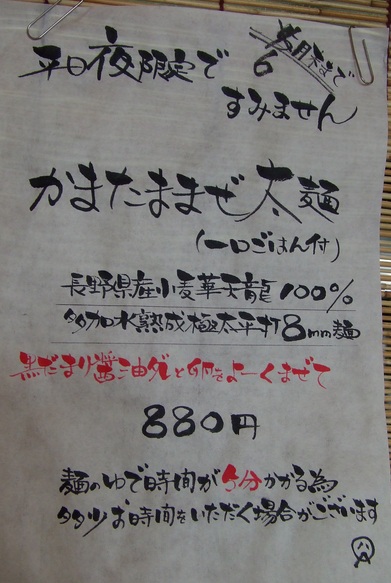 平日夜限定で
6月末まで
すみません
かまたままぜ太麺
(一口ごはん付)
長野県産小麦華天龍100%
多加水熟成極太平打8mm麺
黒だまり醤油ダレと卵をよーくまぜて
880円
麺のゆで時間が5分かかる為
多少お時間をいただく場合がございます